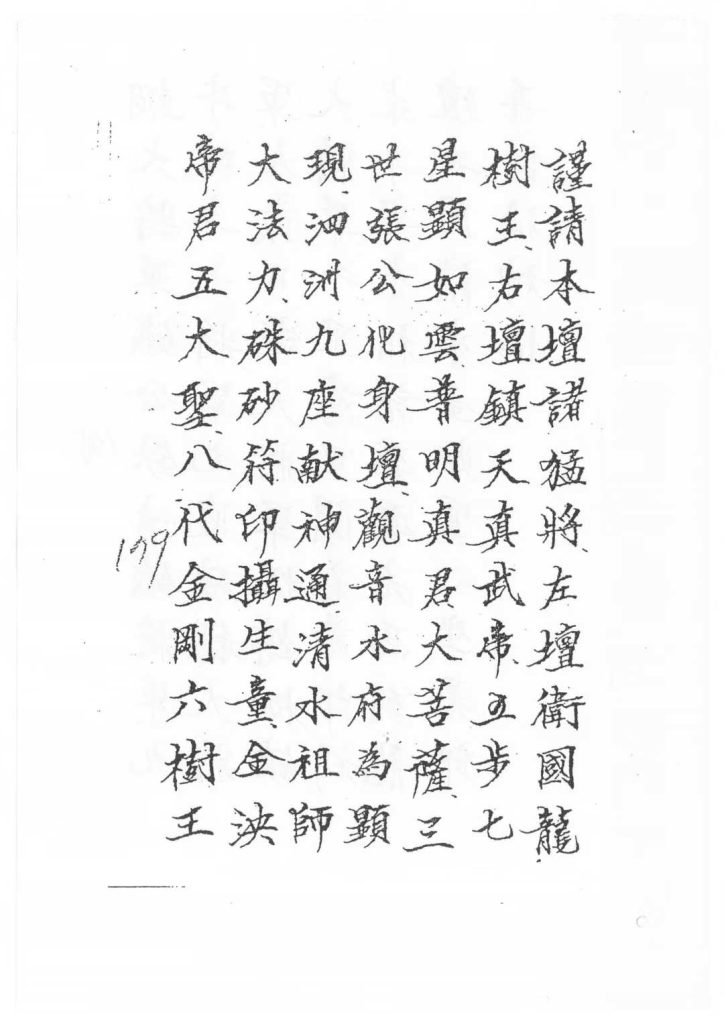 謹請本壇諸猛將左壇衛國龍
樹王右壇鎮天真武帝五步七
星顯如雲普明真君大菩薩三
世張公化身壇觀音水府為顯
現泗洲九座献神通清水祖師
大法力硃砂符印攝生童金泱
帝君五大聖八代金剛六樹王
199